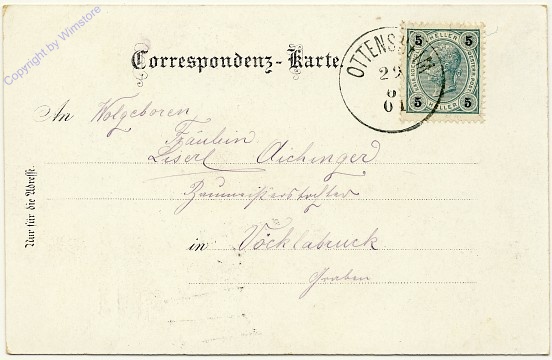 Copyright by Wimstore
Correspondenz-Karte.
OTTENSHEIM
29
8
01
5 5
HELLER
5 5
HELLER
An Wolgeboren
Fräulein
Liserl Aichinger
Baumeisterstochter
in Vöcklabruck
Graben
Nur für die Adresse.